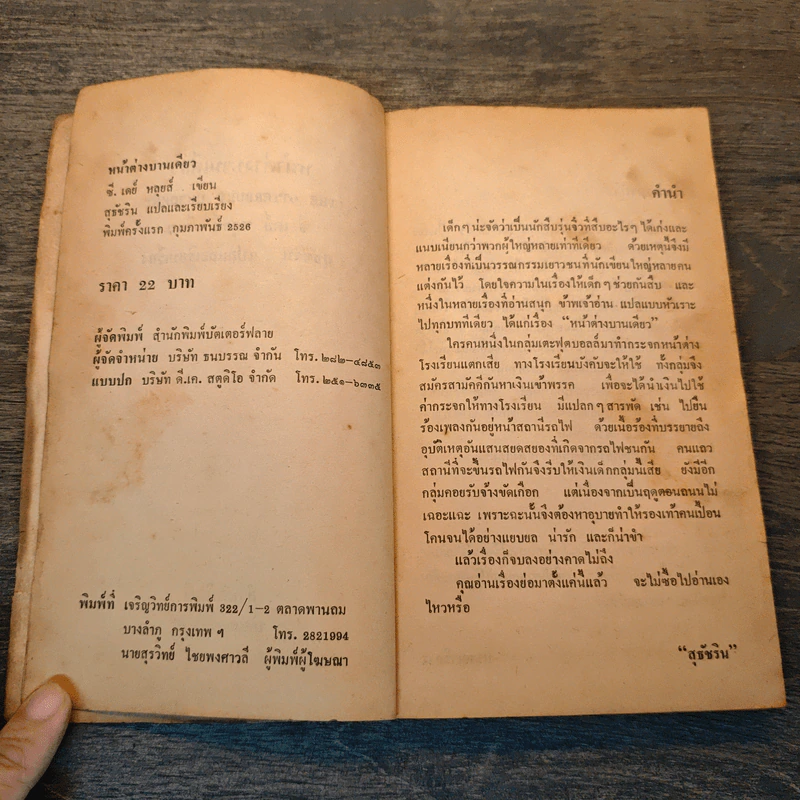 หน้าต่างบานเดียว
ซี. เดย์ หลุยส์ เขียน
สุธัชริน แปลและเรียบเรียง
พิมพ์ครั้งแรก กุมภาพันธ์ 2526
ราคา 22 บาท
ผู้จัดพิมพ์ สำนักพิมพ์บัตเตอร์ฟลาย
ผู้จัดจำหน่าย บริษัท ธนบรรณ จำกัน โทร. ๒๘๒-๔๘๕๓
แบบปก บริษัท ดี.เค. สตูดิโอ จำกัด โทร. ๒๕๑-๖๓๓๕
พิมพ์ที่ เจริญวิทย์การพิมพ์ 322/1-2 ตลาดพานถม
บางลำภู กรุงเทพ ฯ โทร. 2821994
นายสุรวิทย์ ไชยพงศาวลี ผู้พิมพ์ผู้โฆษณา
คำนำ
เด็กๆ น่ะจัดว่าเป็นนักสืบรุ่นจิ๋วที่สืบอะไรๆ ได้เก่งและ
แนบเนียนกว่าพวกผู้ใหญ่หลายเท่าทีเดียว ด้วยเหตุนี้จึงมี
หลายเรื่องที่เป็นวรรณกรรมเยาวชนที่นักเขียนใหญ่หลายคน
แต่งกันไว้ โดยใจความในเรื่องให้เด็กๆ ช่วยกันสืบ และ
หนึ่งในหลายเรื่องที่อ่านสนุก ข้าพเจ้าอ่าน แปลแบบหัวเราะ
ไปทุกบททีเดียว ได้แก่เรื่อง “หน้าต่างบานเดียว”
ใครคนหนึ่งในกลุ่มเตะฟุตบอลล์มาทำกระจกหน้าต่าง
โรงเรียนแตกเสีย ทางโรงเรียนบังคับจะให้ใช้ ทั้งกลุ่มจึง
สมัครสามัคคีกันหาเงินเข้าพรรค เพื่อจะได้นำเงินไปใช้
ค่ากระจกให้ทางโรงเรียน มีแปลกๆ สารพัด เช่น ไปยืน
ร้องเพลงกันอยู่หน้าสถานีรถไฟ ด้วยเนื้อร้องที่บรรยายถึง
อุบัติเหตุอันแสนสยดสยองที่เกิดจากรถไฟชนกัน คนแถว
สถานีที่จะขึ้นรถไฟกันจึงรีบให้เงินเด็กกลุ่มนี้เสีย ยังมีอีก
กลุ่มคอยรับจ้างขัดเกือก แต่เนื่องจากเป็นฤดูตอนถนนไม่
เฉอะแฉะ เพราะฉะนั้นจึงต้องหาอุบายทำให้รองเท้าคนเปื้อน
โคนจนได้อย่างแยบยล น่ารัก และก็น่าขำ
แล้วเรื่องก็จบลงอย่างคาดไม่ถึง
คุณอ่านเรื่องย่อมาตั้งแค่นี้แล้ว จะไม่ซื้อไปอ่านเอง
ไหวหรือ
“สุธัชริน”